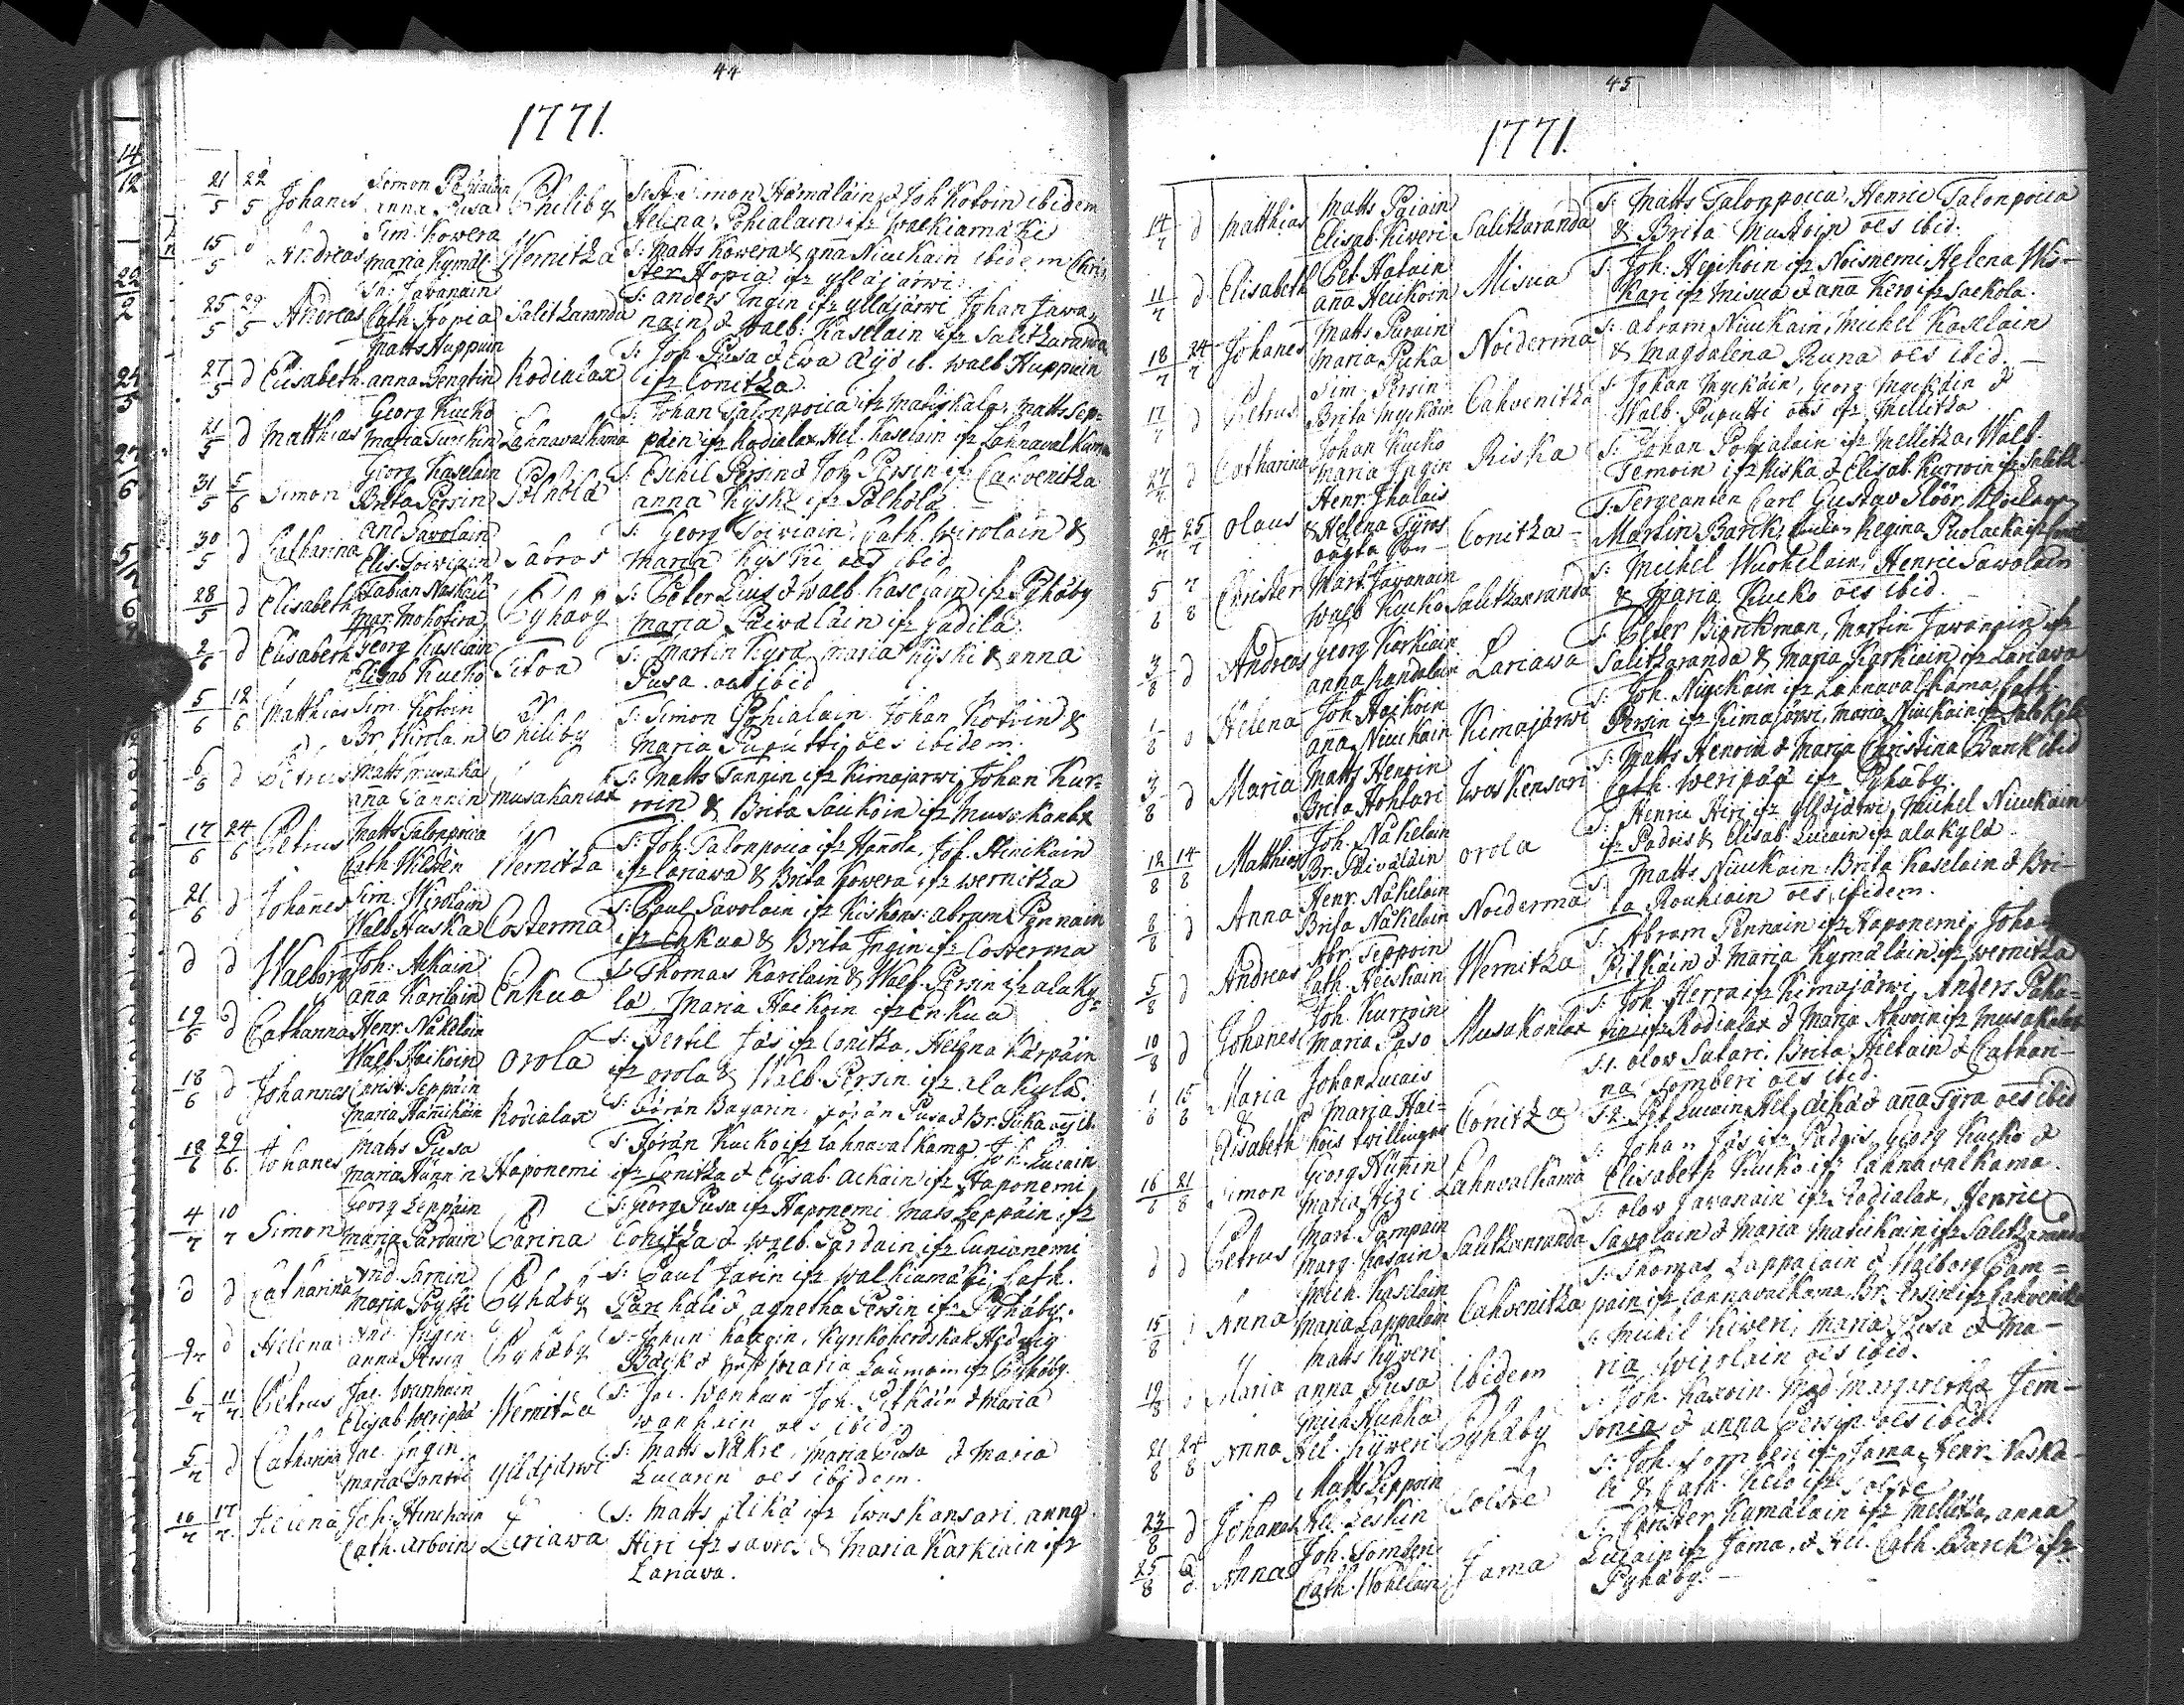 44
1771.
21/5 22/5 Johanes Simon Pohialain anna Pusa Philiby S: Simon Hämäläin, Joh Kotoin ibidem
Helena Pohialain ifr Walkiamäki
15/5 d Andreas Sim. Kowera maria Kymäl. Wernitza S: Matts Kowera & aña Niuckain ibidem Chri-
ster Hopia ifr yläjärwi
25/5 29/5 Andreas Jawanain Cath. Hopia Salitzaranda S: anders Ingin ifr ylläjärwi Johan Jawa-
nain & Walb: Kaselain ifr Salitzaranda
27/5 d Elisabeth matts Huppuin anna Bengtin Rodialax S: Joh Pusa & Ewa ib. walb Huppuin
ifr Conitza
21/5 d Matthias Georg Kucko maria Turckin Lahnavalkama S: Johan Talonpoica ifr matts Sep-
päin ifr Rodialax, Hel. Kaselain ifr Lahnavalkama
31/5 5/6 Simon Georg Kaselain Brita Persin Pölhölä S: Eskil Persin & Joh Persin ifr Cahvenitza
anna Hyski ifr Pölhölä
30/5 d Catharina and Savolain Elis. Soiviain Sabros S: Georg Soiviain, Cath. Wirolain &
Maria Hyski oes ibid
28/5 d Elisabeth Fabian Naskali Mar. Pyhäby S: Peter & walb. Kaselain ifr Pyhäby
maria Päiväläin ifr
2/6 d Elisabeth Georg Kaselain Elisab Kucko S: Martin Kyrä, maria Hyski & anna
Pusa oes ibid
5/6 12/6 Matthias Sim. Kotoin Br. Wirolain Philiby S: Simon Pohialain Johan Kotoin &
Maria Paputti oes ibidem
6/6 d Petrus Matts musacka aña Tannin musakanlax S: Matts Tannin ifr Kimajärwi, Johan Kur-
roin & Brita Saukoin ifr Musakanlax
17/6 24/6 Petrus Matts Talonpoica Cath Wilsten Wernitza S: Joh. Talonpoica ifr Hanola, Joh. Hinikain
ifr Lariawa & Brita Kowera ifr Wernitza
21/6 d Johanes Sim. Wirolain Walb Huska Costerma S: Paul Savolain ifr Kiskons: abram Pennain
ifr Enkua & Brita Ingin ifr Costerma
d d Walborg Joh: Ackain aña Karilain Enkua S: Thomas Karilain & Walb. Persin ifr alaky-
lä Maria Haikoin ifr Enkua
19/6 d Catharina Henr. Näkelain Walb. Haikoin Orola S: Bertil Jäs ifr Conitza, Helena Kärpäin
ifr orola & Walb. Persin ifr alakylä
18/6 d Johannes Christ. Seppäin Maria Hannikäin Rodialax S: Göran Bagarin, Göran Pusa & Br.
18/6 29/6 Johanes Matts Pusa maria Hännin Haponemi S: Jöran Kucko ifr Lahnavalkama, Joh. Lucain
ifr Conitza & Elisab. Achain ifr Haponemi
4/7 10/7 Simon Georg Leppäin maria Pardain Parina S: Georg Pusa ifr Haponemi Mats Leppäin ifr
Conitza & walb. Pardain ifr Cunianemi
d d Catharina And. Sarnin Maria Pöyski Pyhäby S: Paul Jarin ifr Walkiamäki, Cath.
Parchali & agnetha Persin ifr Pyhäby.
9/7 d Helena And. Ingin anna Pyhäby S: Johan Kyrckoherdskak. Hedwig
Bäck & maria Laumain ifr Pyhäby.
6/7 11/7 Petrus Jac. Wanhain Elisab Weripää Wernitza S: Jac. Wanhain Joh. Pitkäin & Maria
Wanhain oes ibid
5/7 d Catharina Jac. Ingin maria yläjärwi S: Matts Näkre, Maria Pusa & Maria
Lucain oes ibidem.
16/7 17/7 Helena Joh. Hinikain Cath. Arvoin Lariawa S: Matts ilikä ifr Iwaskansari, anna
Hiri ifr & Maria Karkiain ifr
Lariawa.
45
1771.
14/7 d Matthias Matts Paiain Elisab. Kiweri Salitzaranda S: Matts Talonpoica, Henric Talonpoica
& Brita Mustoin oes ibid.
11/7 d Elisabeth Pet Hatain aña Heickoin Misua S: Joh. Heickoin ifr Noisnemi Helena Wis-
kari ifr Misua & aña Kero ifr Saekola.
18/7 24/7 Johanes Matts Purain Maria Puka Noiderma S: abram Niuckain, Michel Kaselain
& Magdalena Runa oes ibid.
17/7 d Petrus Sim. Persin Brita Myckäin Cahvenitza S: Johan Myckäin, Georg Myckäin &
Walb. Paputti oes ifr Mellitza
27/7 d Catharina Johan Kucko Maria Ingin Riska S: Johan Pohjalain ifr Mellitza, Walb.
Temoin ifr Riska & Elisab. Kurroin ifr Salitz.
24/7 25/7 Olaus Henr. Ihalais & Helena Tyras ägta Son Conitza S: Sergeanten Carl Gustav Flöör, Klockar
Martin Barck, Regina Puolacka ifr Conit
5/8 7/8 Christer Mart. Jawanain Walb Kucko Salitzaranda S: Michel Wuohelain, Henric Savolain
& Maria Kucko oes ibid.
3/8 d Andreas Georg Korkiain anna Randalain Lariawa S: Peter Biörckman, Martin Jawanain ifr
Salitzaranda & Maria Karkiain ifr Lariawa
1/8 d Helena Joh. Haikoin aña Niuckain Kimajärwi S: Joh. Niuckain ifr Lahnavalkama, Cath.
Persin ifr Kimajärwi, Maria Niuckain ifr
3/8 d Maria Matts Henroin Brita Hohtari Iwaskensari S: Matts Henroin & Maria Christina Bank ibid
Cath. Weripää ifr Pyhäby.
12/8 14/8 Matthias Joh. Näkelain Br. Päiväläin orola S: Henric Hiri ifr yläjärwi, Michel Niuckain
ifr Padois & Elisab. Lucain ifr alakylä
8/8 d Anna Henr. Näkelain Brita Näkelain Noiderma S: Matts Niuckain, Brita Kaselain & Bri-
ta Rouhiain oes ibidem.
5/8 d Andreas Abr. Seppoin Cath. Heiskain Wernitza S: Abram Pennain ifr Haponemi, Joha
Pitkäin & Maria Kymäläin ifr wernitza
10/8 d Johanes Joh. Kurroin Maria Paso Musakanlax S: Joh. Herra ifr Kimajärwi, Anders Paka-
rin ifr Rodialax & Maria Ahvoin ifr Musakalax
1/8 15/8 Maria & Elisabeth Johan Lucais & Maria Hai-kois twillingar Conitza S: 1. olov Sutari, Brita Hietain & Cathari-
na Somberi oes ibid.
S: 2. Pet Lucain, Hel. & aña Tyra oes ibid
16/8 21/8 Simon Georg Hütin Maria Hizi Lahnvalkama S: Johan Jäs ifr Padois, Georg Kucko &
Elisabeth Kucko ifr Lahnavalkama
d d Petrus Mart. Pampain Marg. Kasain Salitzanranda S: olov Jawanain ifr Rodialax, Henric
Savolain & Maria Matickain ifr Salitzaranda
15/8 d Anna Mich. Kaselain Maria Lappalain Cahvenitza S: Thomas Lappalain & Walborg Pam-
pain ifr Lahnavalkama, Br. Persin ifr Cahvenitz
19/8 d Maria Matts Kyweri anna Pusa ibidem S: Michel Kiweri, Maria Pusa & Ma-
ria Wirolain oes ibid.
21/8 24/8 Anna Mich Huhka Hel. Kyweri Pyhäby S: Joh. Karoin Mad Margaretha Jem-
sonia & anna Persin oes ibid.
23/8 d Johanes Matts Leppoin Hel. Leskin Solde S: Joh. Somberi ifr Jama, Henr. Naska-
li & Cath. ifr Solde
25/8 d Anna Joh. Somberi Cath. Wohelain Jama S: Christer Kymälain ifr Mellitza, anna
Lucain ifr Jama, & Hel. Cath. Barck ifr
Pyhäby.